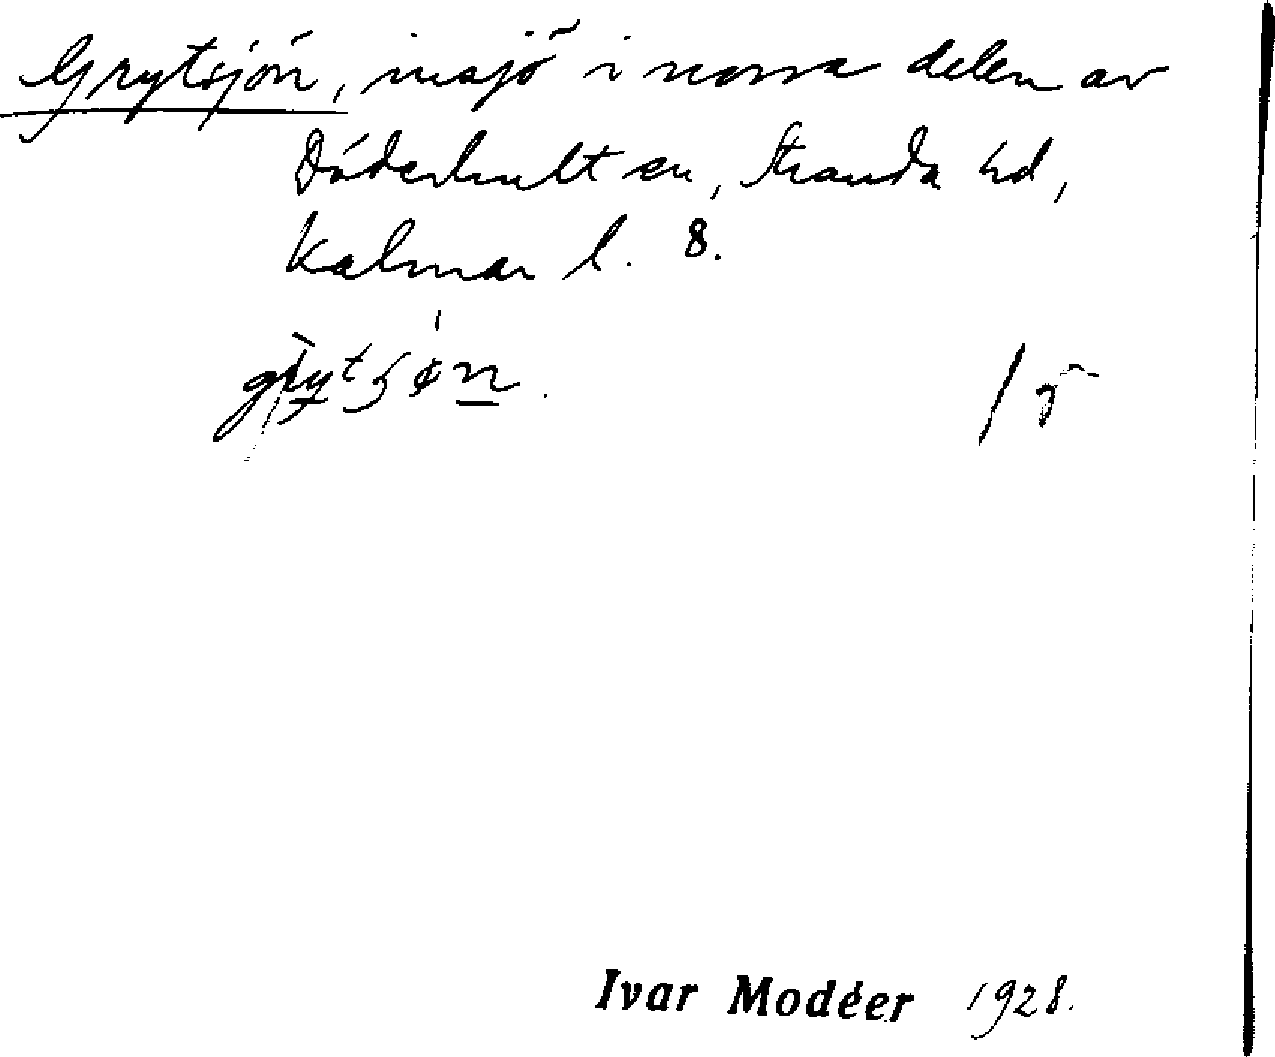 Grytsjön, insjö i norra delen av
Döderhult sn, Stranda hd,
Kalmar l. 8.
Ivar Modéer 1928.